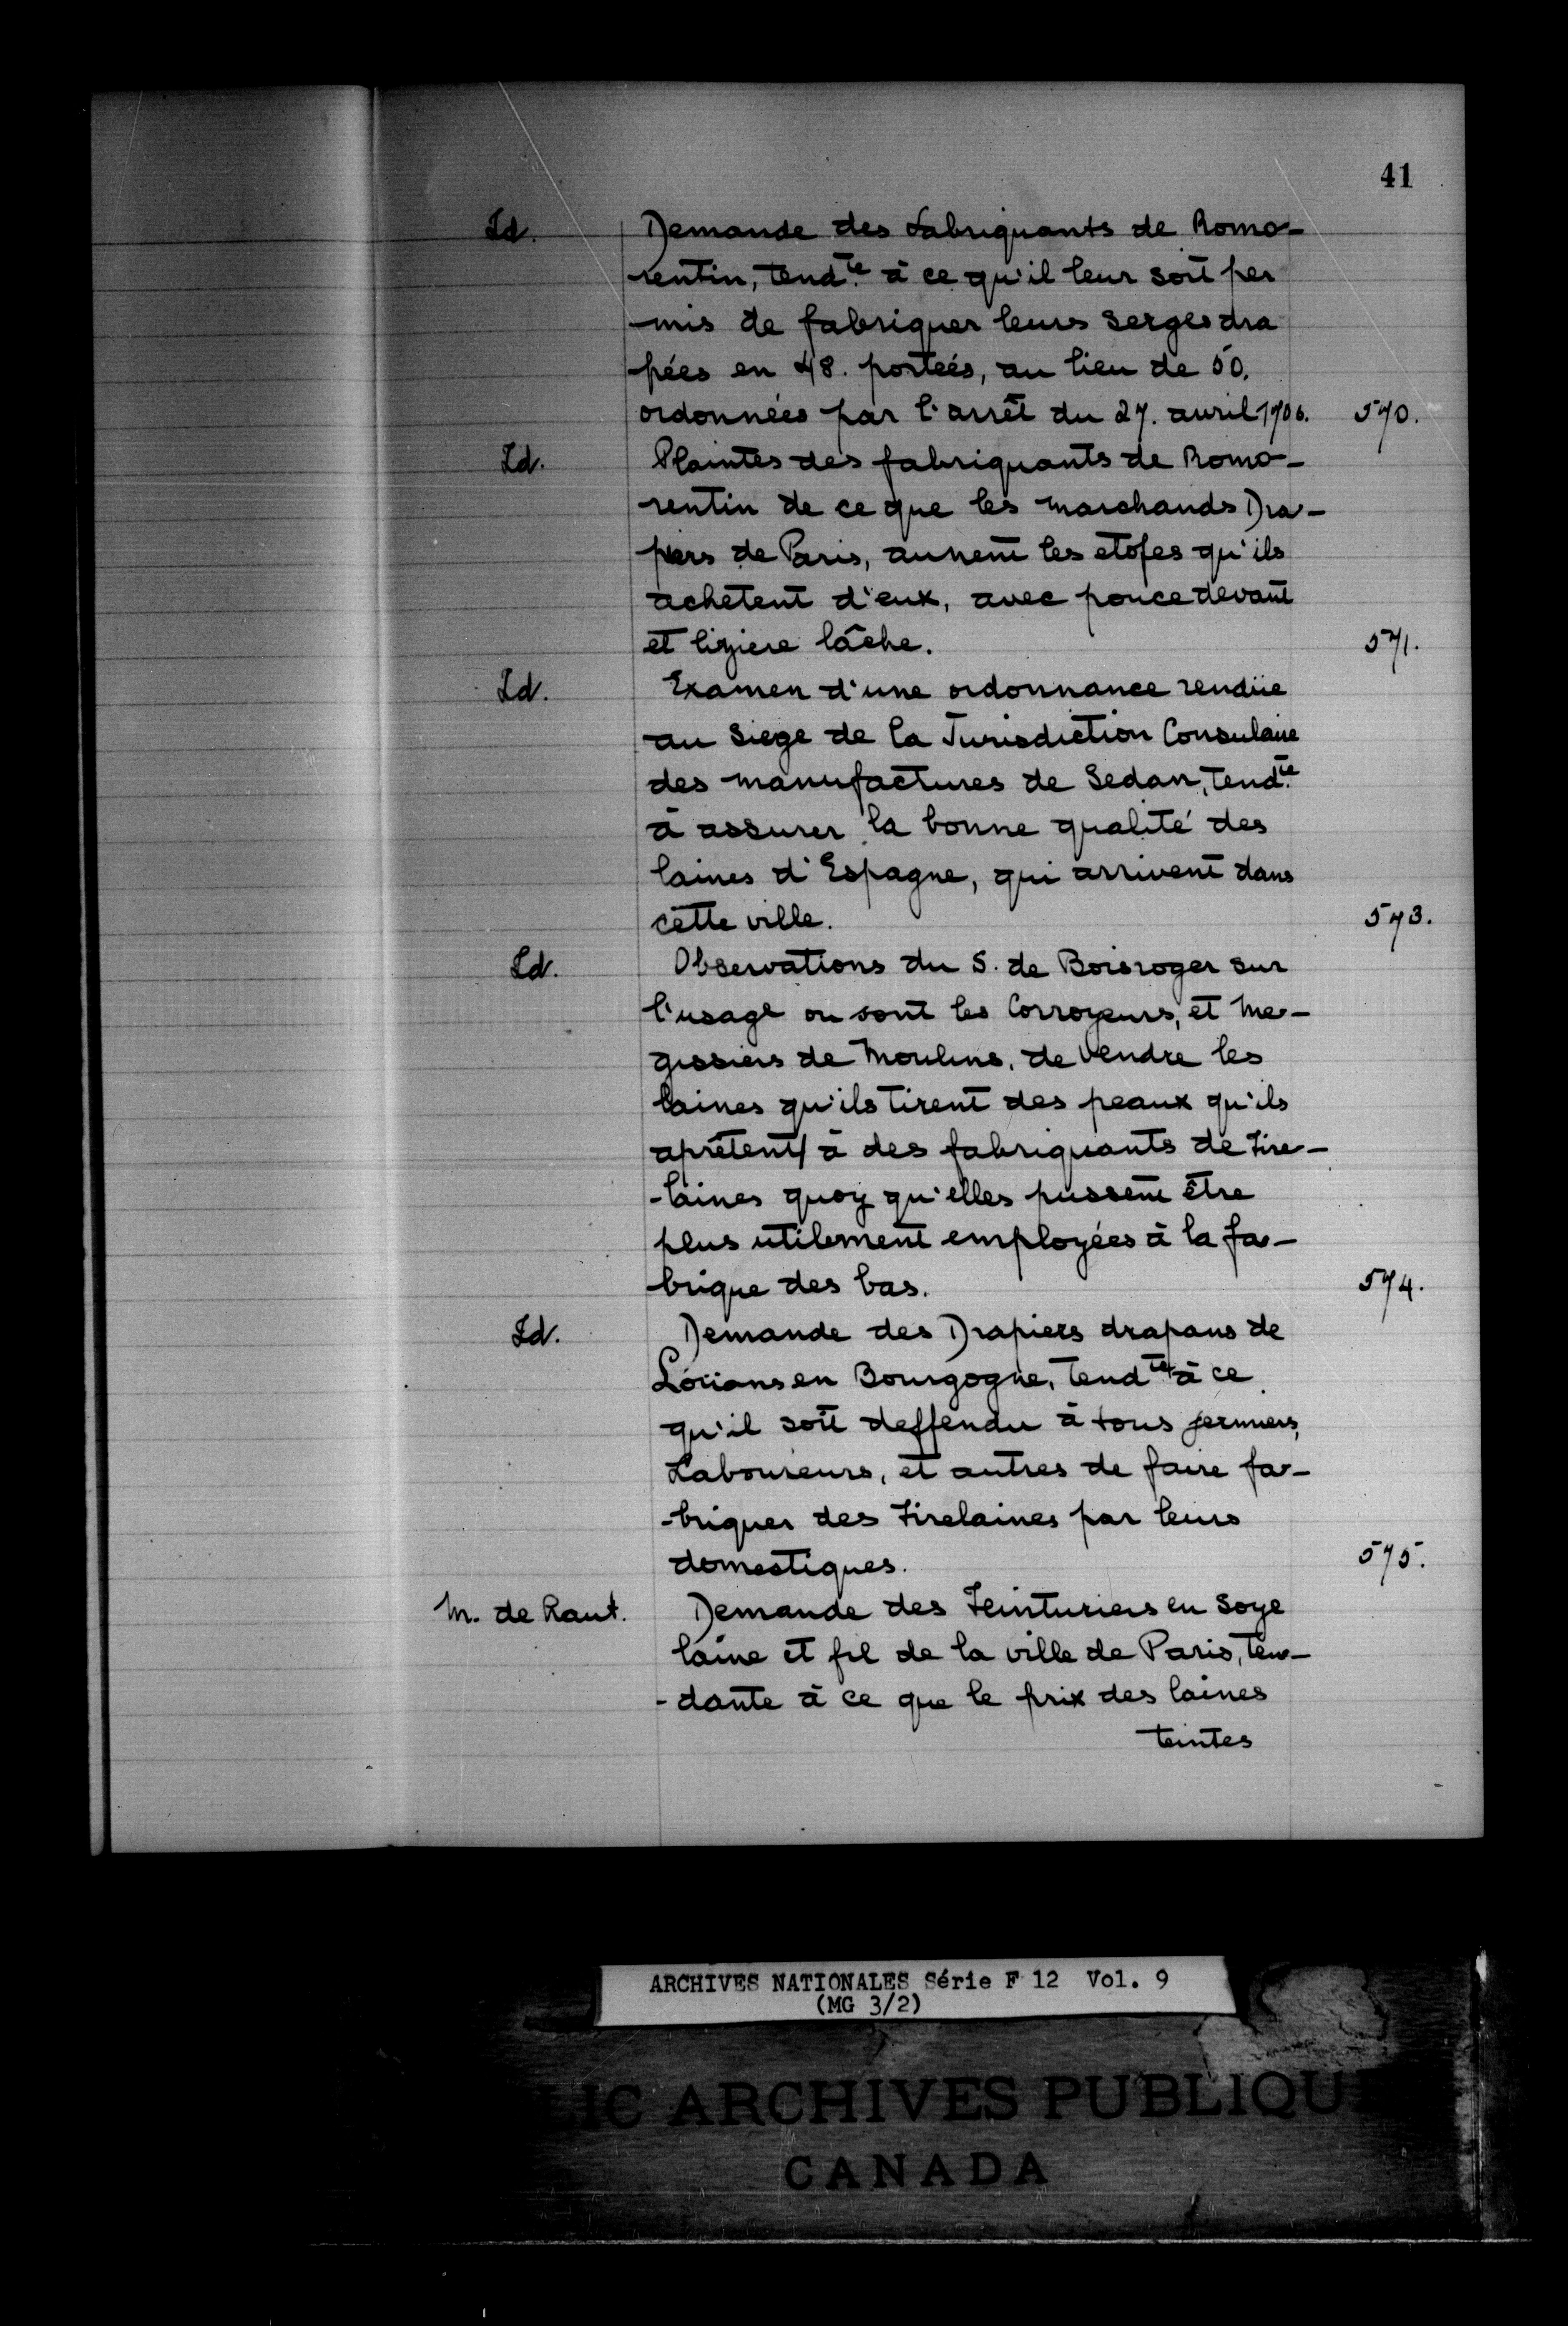 41
Id. Demande des fabriquants de Romo-
rentin, tend.te à ce qu'il leur soit per
-mis de fabriquer leurs serges dra
pées en 48. portées, au lieu de 50.
ordonnées par l'arrêt du 27. avril 1706. 570.
Id. Plaintes des fabriquants de Romo-
rentin de ce que les marchands Dra-
piers de Paris, aunent les etofes qu'ils
achetent d'eux, avec pouce devant
et liziere lâche. 571.
Id. Examen d'une ordonnance rendüe
au siege de la Jurisdiction Consulaire
des manufactures de Sedan, tend.te
à assurer la bonne qualité des
laines d'Espagne, qui arrivent dans
cette ville. 573.
Id. Observations du S. de Boisroger sur
l'usage ou sont les Corroyeurs, et Me-
gissiers de Moulins, de vendre les
laines qu'ils tirent des peaux qu'ils
aprêtent, à des fabriquants de tire-
-laines quoy qu'elles pussent être
plus utilement employées à la fa-
brique des bas. 574.
Id. Demande des Drapiers drapans de
Loüans en Bourgogne, tend.te à ce
qu'il soit deffendu à tous fermiers,
Laboureurs, et autres de faire fa-
-briquer des tirelaines par leurs
domestiques. 575.
M. de Raut. Demande des Teinturiers en soye
laine et fil de la ville de Paris, ten-
-dante à ce que le prix des laines
teintes
ARCHIVES NATIONALES Série F 12 Vol. 9
(MG 3/2)
LIC ARCHIVES PUBLIQU
CANADA